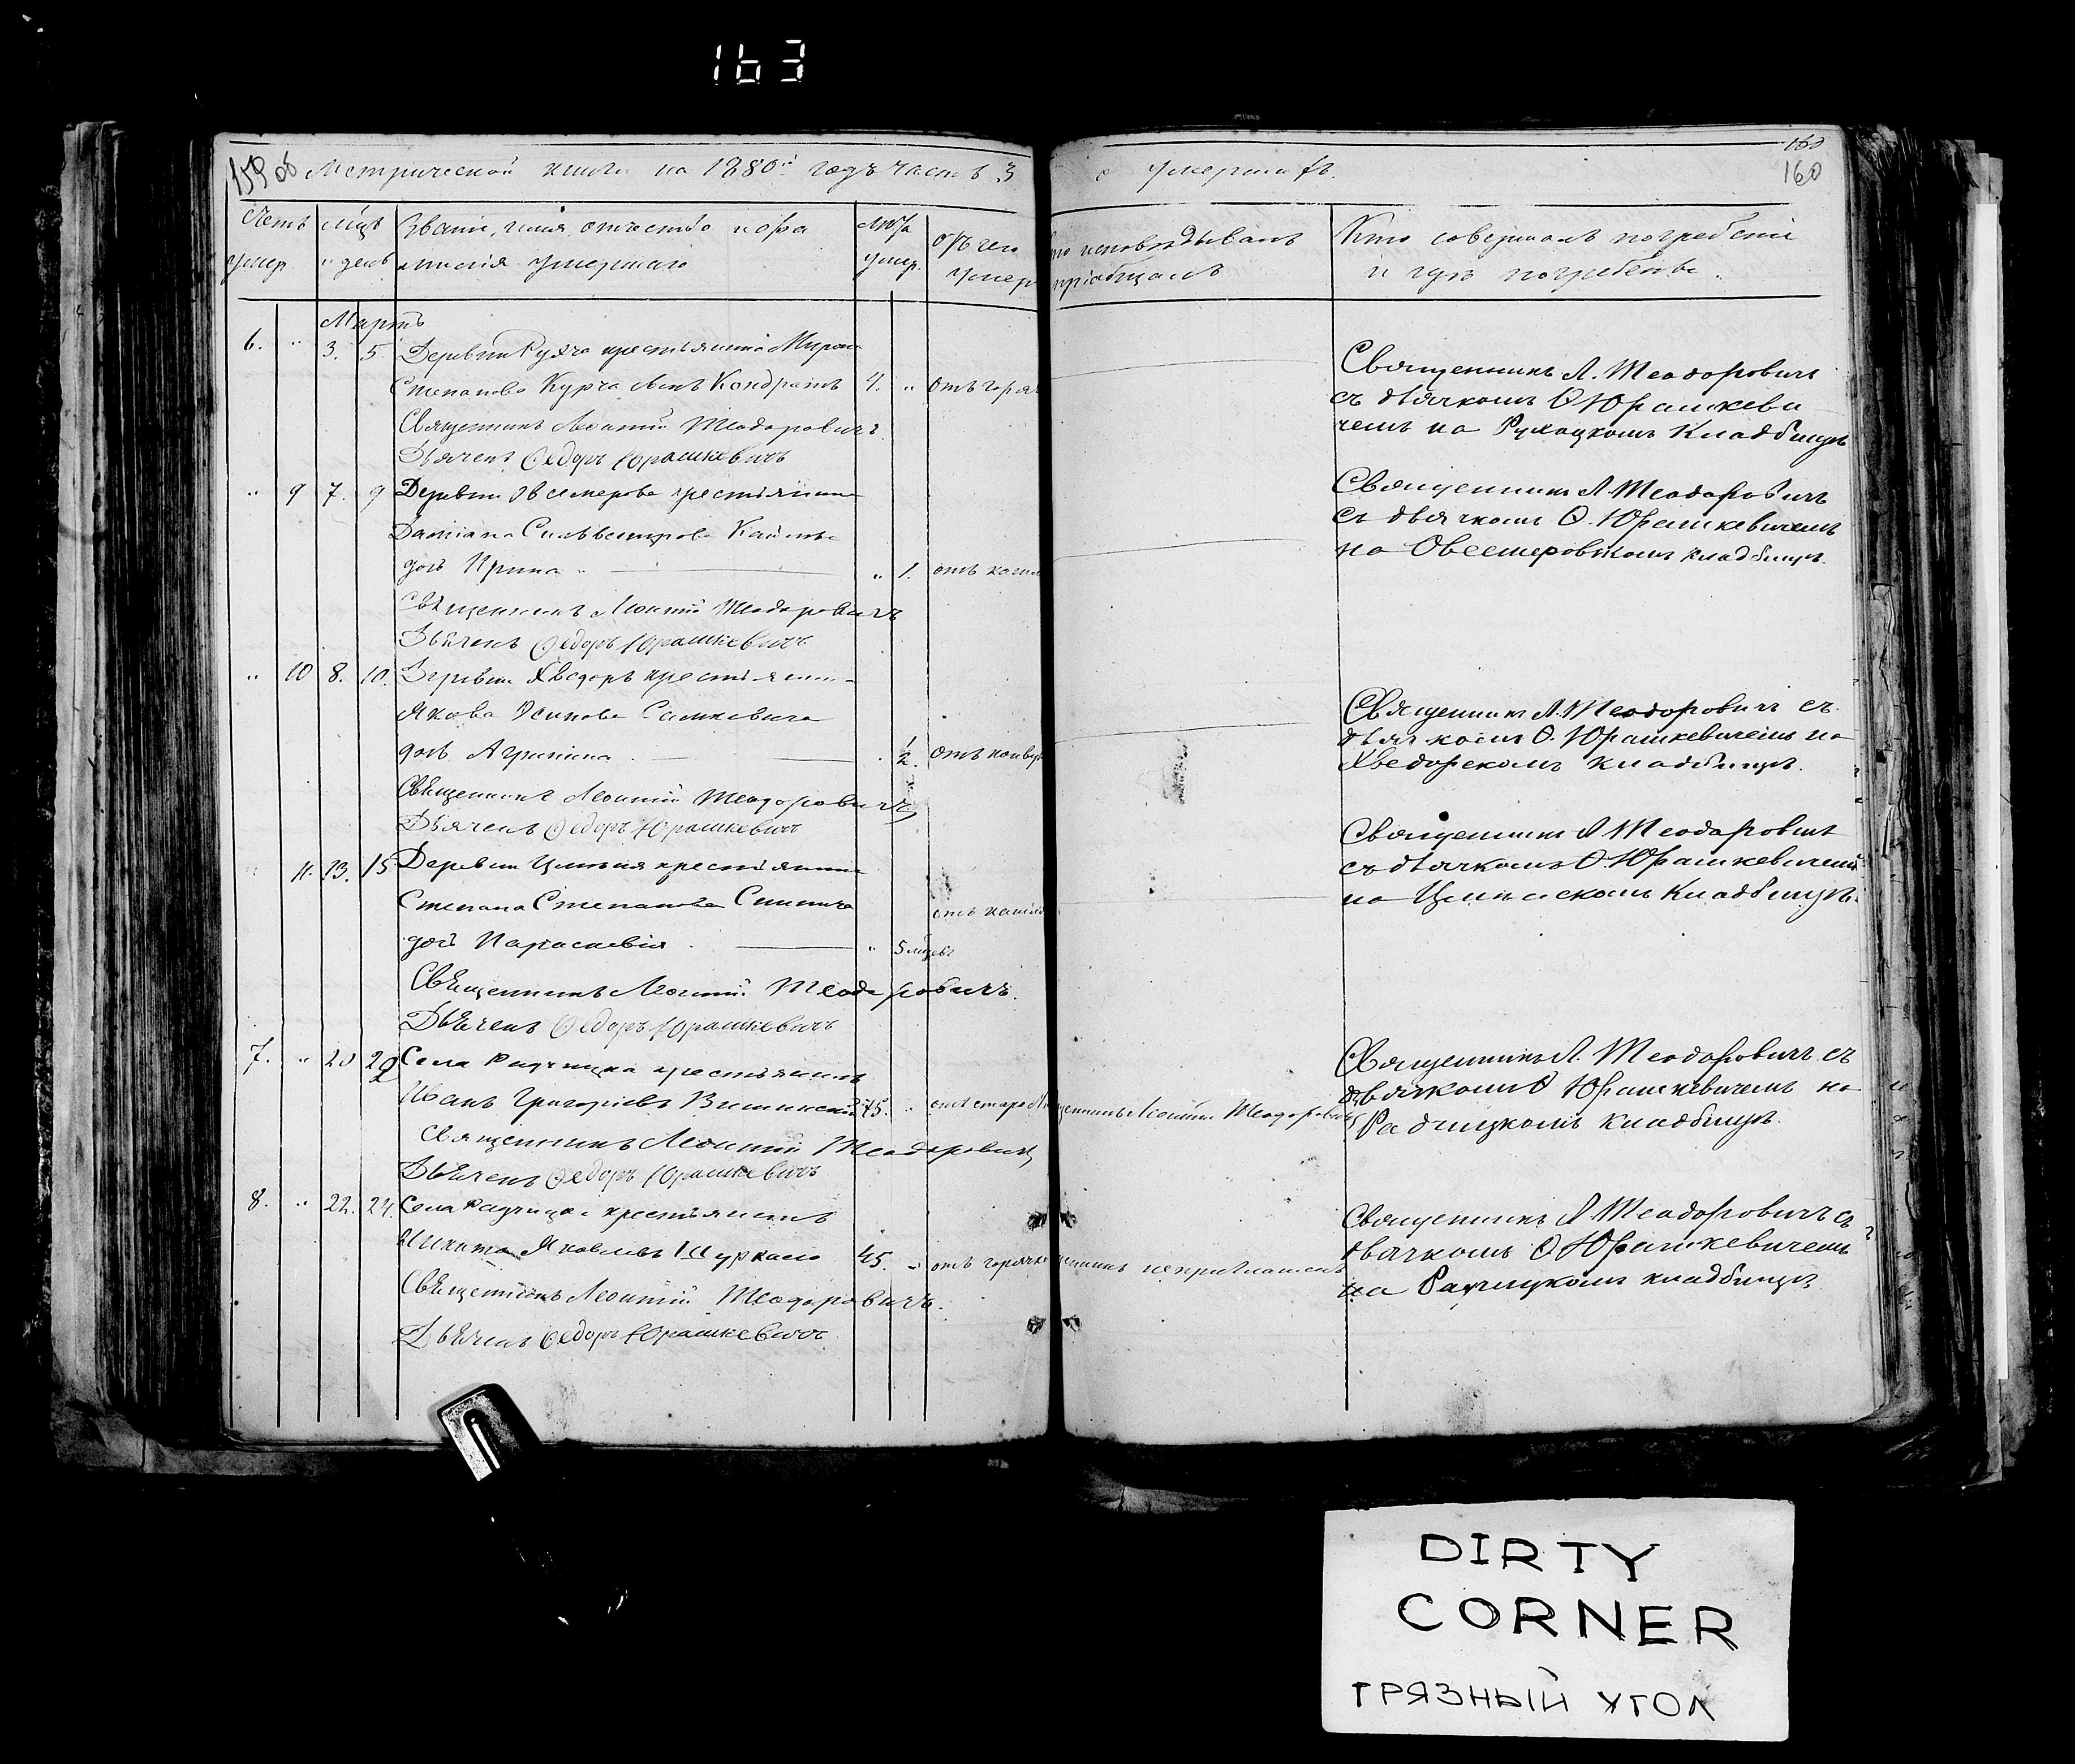 163
159 об Метрической книги на 1880й годъ часть 3
Счетъ умер.
Мцъ и день
Званіе, имя, отчество и фамилія умершаго
Лѣта умер.
Отъ чего умер
Мартъ
6. " 3. 5. Деревни Рухча крестьянина Мирона
Степанова Курча сынъ Кондратъ 4. " отъ горяч
Священникъ Леонтій Теодоровичъ
Дьячекъ Ѳедоръ Юрашкевичъ
" 9 7. 9 Деревни Овсемерова крестьянина
Даміана Сильвестрова
дочь Ирина " 1. отъ кашл
Священникъ Леонтій Теодоровичъ
Дьячекъ Ѳедоръ Юрашкевичъ
" 10 8. 10. Деревни Хведоръ крестьянина
Якова Осипова Сашкевича
дочь Агрипина 1/2. отъ конвул
Священникъ Леонтій Теодоровичъ
Дьячекъ Ѳедоръ Юрашкевичъ
" 11. 13. 15 Деревни крестьянина
Степана Степанова отъ кашля
дочь Параскевія " 5 мцевъ
Священникъ Леонтій Теодоровичъ.
Дьячекъ Ѳедоръ Юрашкевичъ
7. " 20 22 Села Радчицка крестьянинъ
Иванъ Григоріевъ 75. " отъ старо
Священникъ Леонтій Теодоровичъ
Дьячекъ Ѳедоръ Юрашкевичъ
8. " 22. 24. Села Радчицка крестьянинъ
Никита Яковлевъ Шуркало 45. " отъ горячк
Священникъ Леонтій Теодоровичъ.
Дьячекъ Ѳедоръ Юрашкевичъ
160
о умершихъ.
160
то исповѣдывалъ
пріобщалъ
Кто совершалъ погребеніе
и гдѣ погребены.
Священникъ Л. Теодоровичъ
съ дьячкомъ Ѳ Юрашкеви
чемъ на Рухоцкомъ Кладбищѣ
Священникъ Л Теодоровичъ
съ дьячкомъ Ѳ. Юрашкевичемъ
на Овсемеровскомъ кладбищѣ.
Священникъ Л. Теодоровичъ съ
дьячкомъ Ѳ. Юрашкевичемъ на
Хведорскомъ кладбищѣ.
Священникъ Л Теодоровичъ
съ дьячкомъ Ѳ. Юрашкевичемъ
на Кладбищѣ.
Священникъ Л. Теодоровичъ съ
дьячкомъ Ѳ Юрашкевичемъ на
Радчицкомъ кладбищѣ.
щенникъ Леонтій Теодоровичъ
Священникъ Л Теодоровичъ съ
дьячкомъ Ѳ Юрашкевичемъ
на Радчицкомъ кладбищѣ.
щенникъ непріглашенъ
DIRTY
CORNER
ГРЯЗНЫЙ УГОЛ